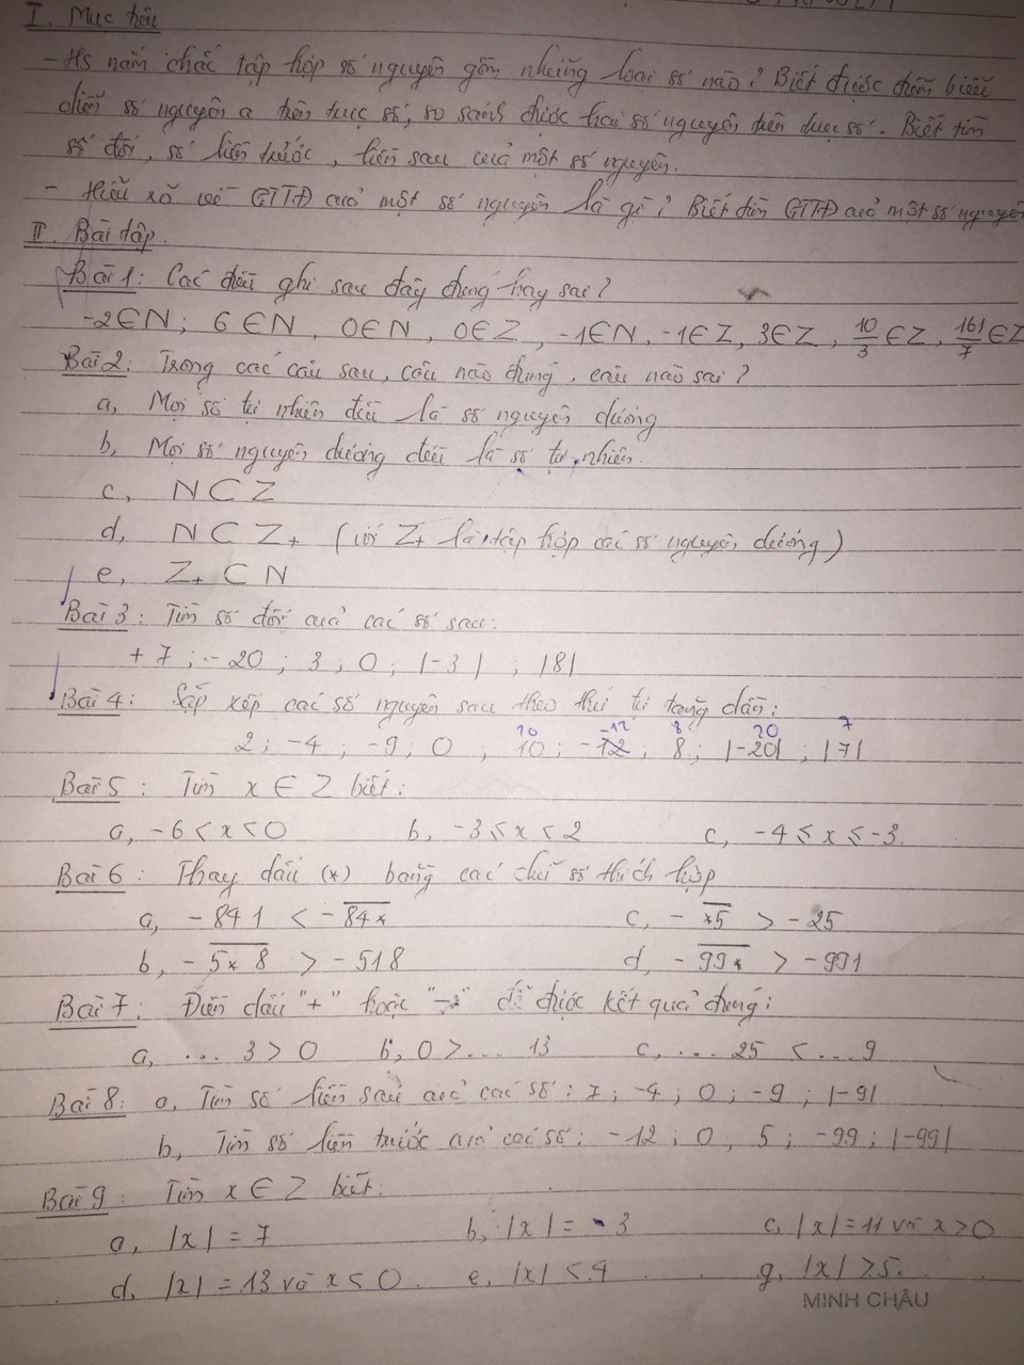 I. Mục tiêu
- Hs nắm chắc tập hợp số nguyên gồm những loại số nào? Biết được điểm biểu
diễn số nguyên a trên trục số, so sánh được hai số nguyên trên trục số. Biết tìm
số đối, số liền trước, liền sau của một số nguyên.
- Hiểu rõ về GTTĐ của một số nguyên là gì? Biết tìm GTTĐ của một số nguyên
II. Bài tập.
Bài 1: Các điều ghi sau đây đúng hay sai?
-2∈N; 6∈N, 0∈N, 0∈Z, -1∈N, -1∈Z, 3∈Z, 10/3 ∈Z, 161/7 ∈Z
Bài 2: Trong các câu sau, câu nào đúng, câu nào sai?
a, Mọi số tự nhiên đều là số nguyên dương
b, Mọi số nguyên dương đều là số tự nhiên.
c, N⊂Z
d, N⊂Z+ (với Z+ là tập hợp các số nguyên dương)
e, Z+⊂N
Bài 3: Tìm số đối của các số sau:
+7; -20; 3; 0; |-3|; |8|
Bài 4: Sắp xếp các số nguyên sau theo thứ tự tăng dần:
10 -12 8 20 7
2; -4; -9; 0; 10; -12; 8; |-20|; |7|
Bài 5: Tìm x ∈ Z biết:
a, -6<x<0 b, -3≤x<2 c, -4≤x≤-3.
Bài 6: Thay dấu (*) bằng các chữ số thích hợp
a, -841 < -84* c, -*5 > -25
b, -5*8 > -518 d, -99* > -991
Bài 7: Điền dấu "+" hoặc "-" để được kết quả đúng:
a, ... 3 > 0 b, 0 > ... 13 c, ... 25 < ... 9
Bài 8: a, Tìm số liền sau của các số: 7; -4; 0; -9; |-9|
b, Tìm số liền trước của các số: -12; 0, 5; -99; |-99|
Bài 9: Tìm x ∈ Z biết:
a, |x| = 7 b, |x| = -3 c, |x| = 11 và x>0
d, |x| = 13 và x<0. e, |x| < 4 g, |x| >5.
MINH CHÂU